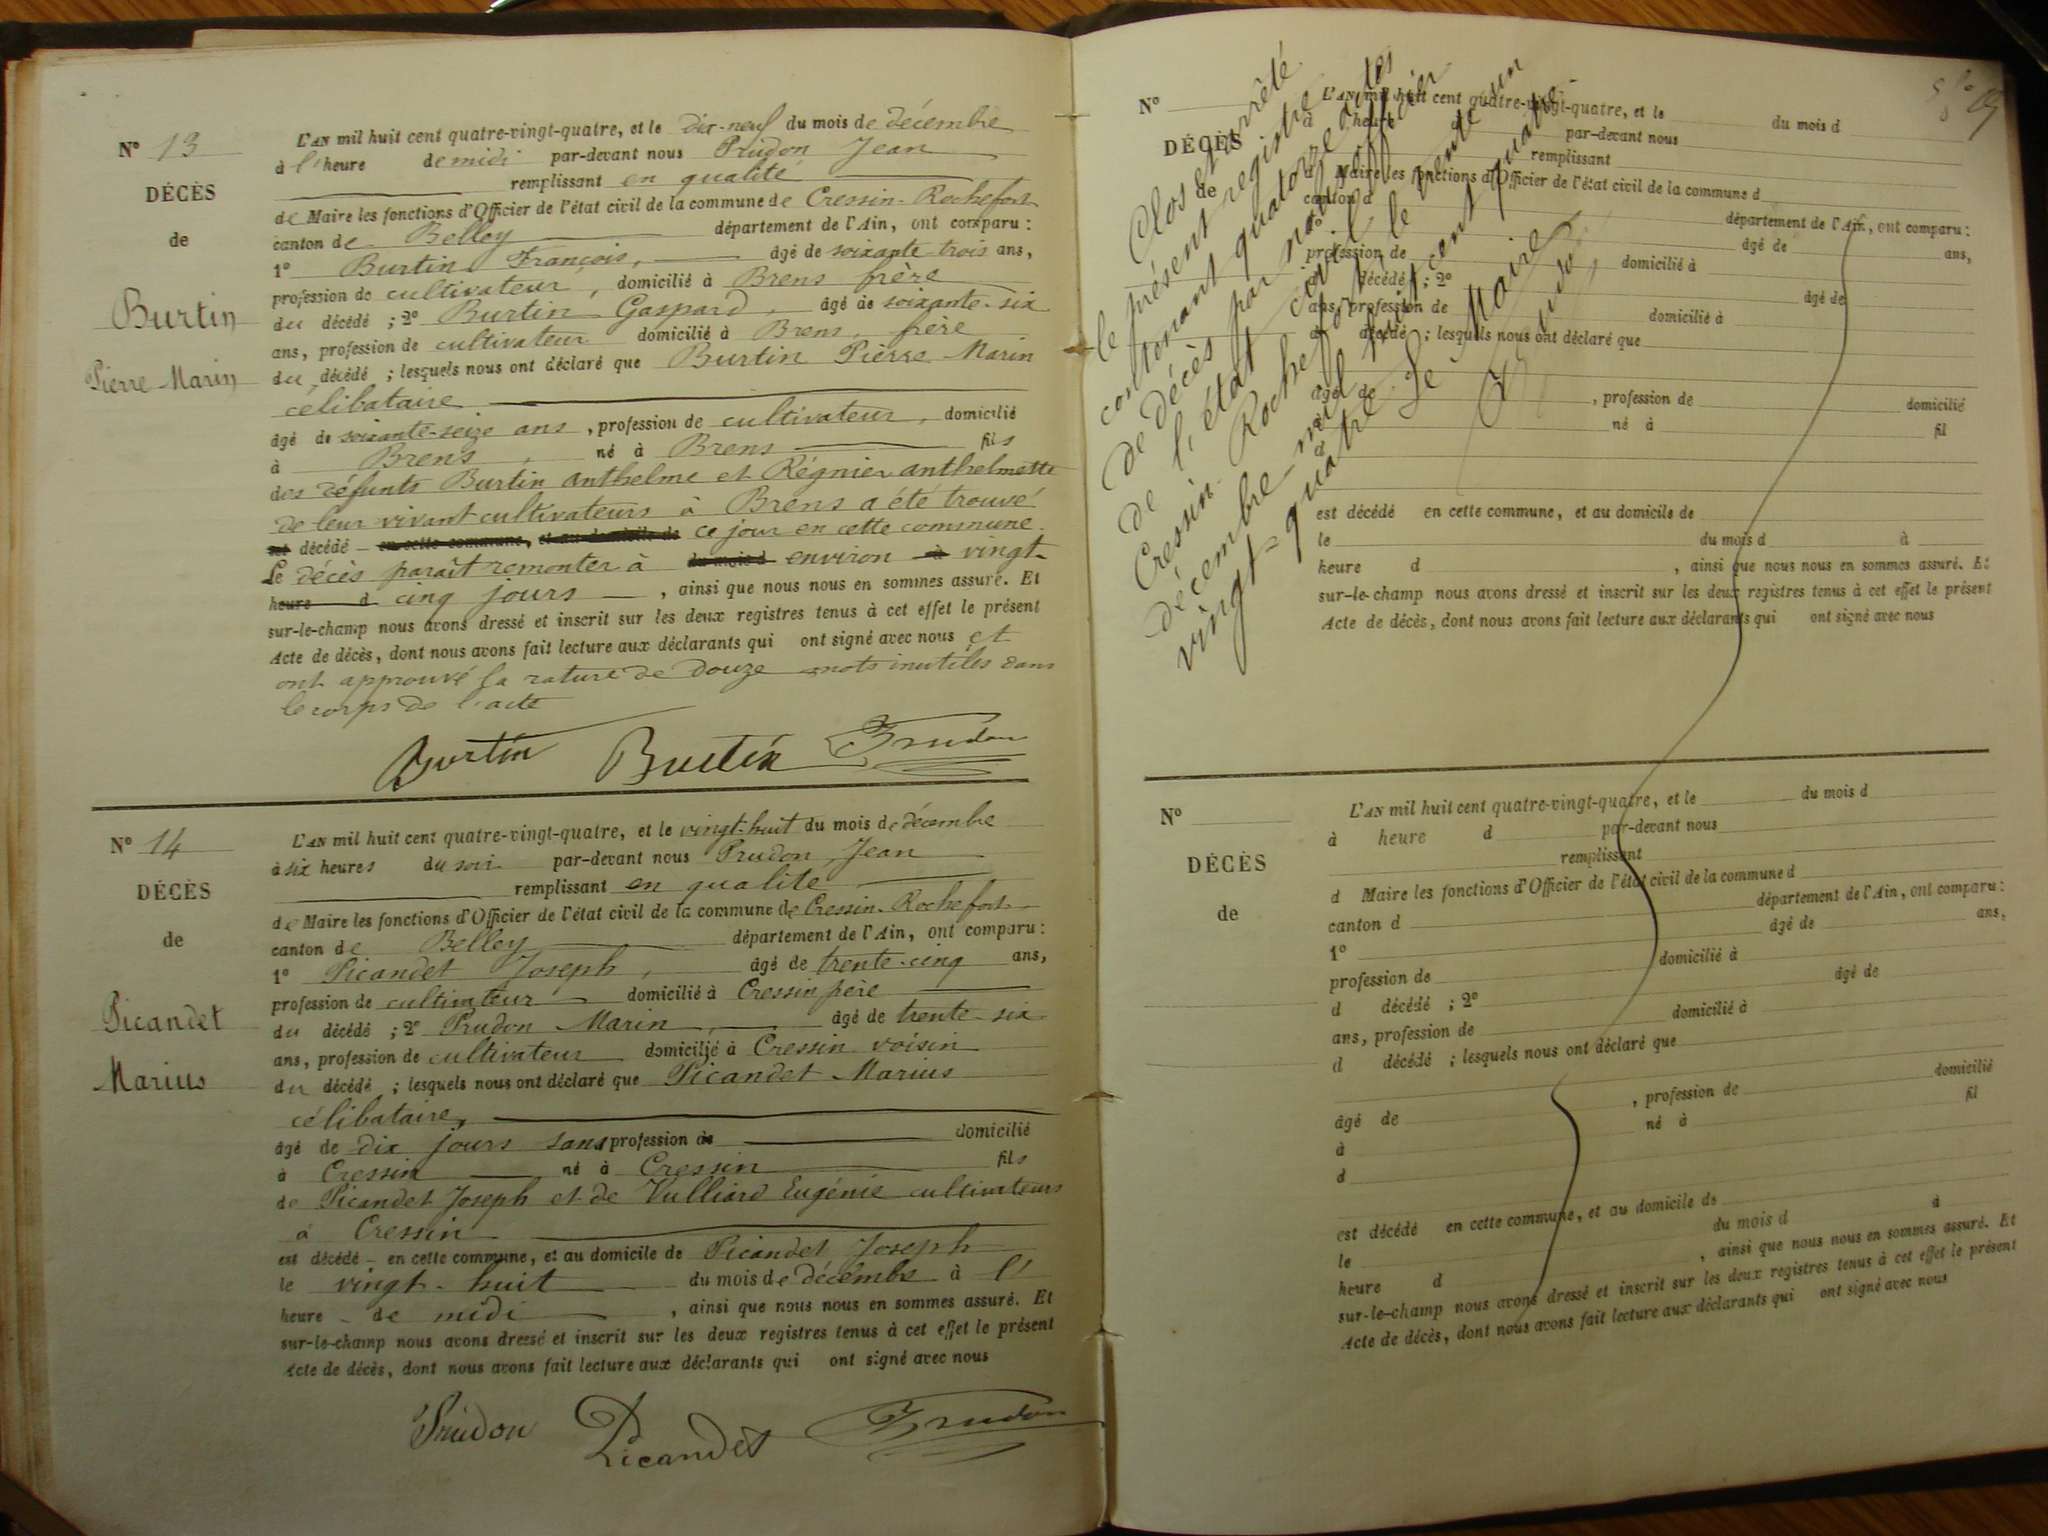 N° 13
DÉCÈS
de
Burtin
Pierre Marin
L'AN mil huit cent quatre-vingt-quatre, et le dix-neuf du mois de décembre
à l'heure de midi par-devant nous Prudon Jean
remplissant en qualité
de Maire les fonctions d'Officier de l'état civil de la commune de Cressin-Rochefort
canton de Belley département de l'Ain, ont comparu :
1° Burtin François, âgé de soixante trois ans,
profession de cultivateur, domicilié à Brens frère
du décédé ; 2° Burtin Gaspard, âgé de soixante-six
ans, profession de cultivateur domicilié à Brens, frère
du décédé ; lesquels nous ont déclaré que Burtin Pierre Marin
célibataire
âgé de soixante-seize ans, profession de cultivateur, domicilié
à Brens, né à Brens fils
des défunts Burtin anthelme et Régnier anthelmette
de leur vivant cultivateurs à Brens a été trouvé
est décédé - en cette commune, et au domicile de ce jour en cette commune.
Le décès paraît remonter à du mois d environ à vingt-
heure d cinq jours, ainsi que nous nous en sommes assuré. Et
sur-le-champ nous avons dressé et inscrit sur les deux registres tenus à cet effet le présent
Acte de décès, dont nous avons fait lecture aux déclarants qui ont signé avec nous et
ont approuvé la rature de douze mots inutiles dans
le corps de l'acte
Burtin Burtin Prudon
N° 14
DÉCÈS
de
Picandet
Marius
L'AN mil huit cent quatre-vingt-quatre, et le vingt-huit du mois de décembre
à six heures du soir par-devant nous Prudon Jean
remplissant en qualité
de Maire les fonctions d'Officier de l'état civil de la commune de Cressin-Rochefort
canton de Belley département de l'Ain, ont comparu :
1° Picandet Joseph, âgé de trente-cinq ans,
profession de cultivateur domicilié à Cressin père
du décédé ; 2° Prudon Marin, âgé de trente-six
ans, profession de cultivateur domicilié à Cressin voisin
du décédé ; lesquels nous ont déclaré que Picandet Marius
célibataire,
âgé de dix jours sans profession de domicilié
à Cressin né à Cressin fils
de Picandet Joseph et de Vulliard Eugénie cultivateurs
à Cressin
est décédé - en cette commune, et au domicile de Picandet Joseph
le vingt-huit du mois de décembre à l'
heure de midi, ainsi que nous nous en sommes assuré. Et
sur-le-champ nous avons dressé et inscrit sur les deux registres tenus à cet effet le présent
Acte de décès, dont nous avons fait lecture aux déclarants qui ont signé avec nous
Prudon Picandet Prudon
Clos et arrêté
le présent registre
contenant quatorze actes
de décès par nous officier
de l'état civil de
Cressin-Rochefort le trente un
décembre mil huit cent quatre
vingt-quatre. Le Maire
Prudon
N°
DÉCÈS
de
L'AN mil huit cent quatre-vingt-quatre, et le du mois d
à heure d par-devant nous
remplissant
d Maire les fonctions d'Officier de l'état civil de la commune d
canton d département de l'Ain, ont comparu :
1° âgé de ans,
profession de domicilié à
d décédé ; 2° âgé de
ans, profession de domicilié à
d décédé ; lesquels nous ont déclaré que
âgé de , profession de domicilié
à né à fil
d
est décédé en cette commune, et au domicile de
le du mois d à
heure d , ainsi que nous nous en sommes assuré. Et
sur-le-champ nous avons dressé et inscrit sur les deux registres tenus à cet effet le présent
Acte de décès, dont nous avons fait lecture aux déclarants qui ont signé avec nous
N°
DÉCÈS
de
L'AN mil huit cent quatre-vingt-quatre, et le du mois d
à heure d par-devant nous
remplissant
d Maire les fonctions d'Officier de l'état civil de la commune d
canton d département de l'Ain, ont comparu :
1° âgé de ans,
profession de domicilié à
d décédé ; 2° âgé de
ans, profession de domicilié à
d décédé ; lesquels nous ont déclaré que
âgé de , profession de domicilié
à né à fil
d
est décédé en cette commune, et au domicile de
le du mois d à
heure d , ainsi que nous nous en sommes assuré. Et
sur-le-champ nous avons dressé et inscrit sur les deux registres tenus à cet effet le présent
Acte de décès, dont nous avons fait lecture aux déclarants qui ont signé avec nous